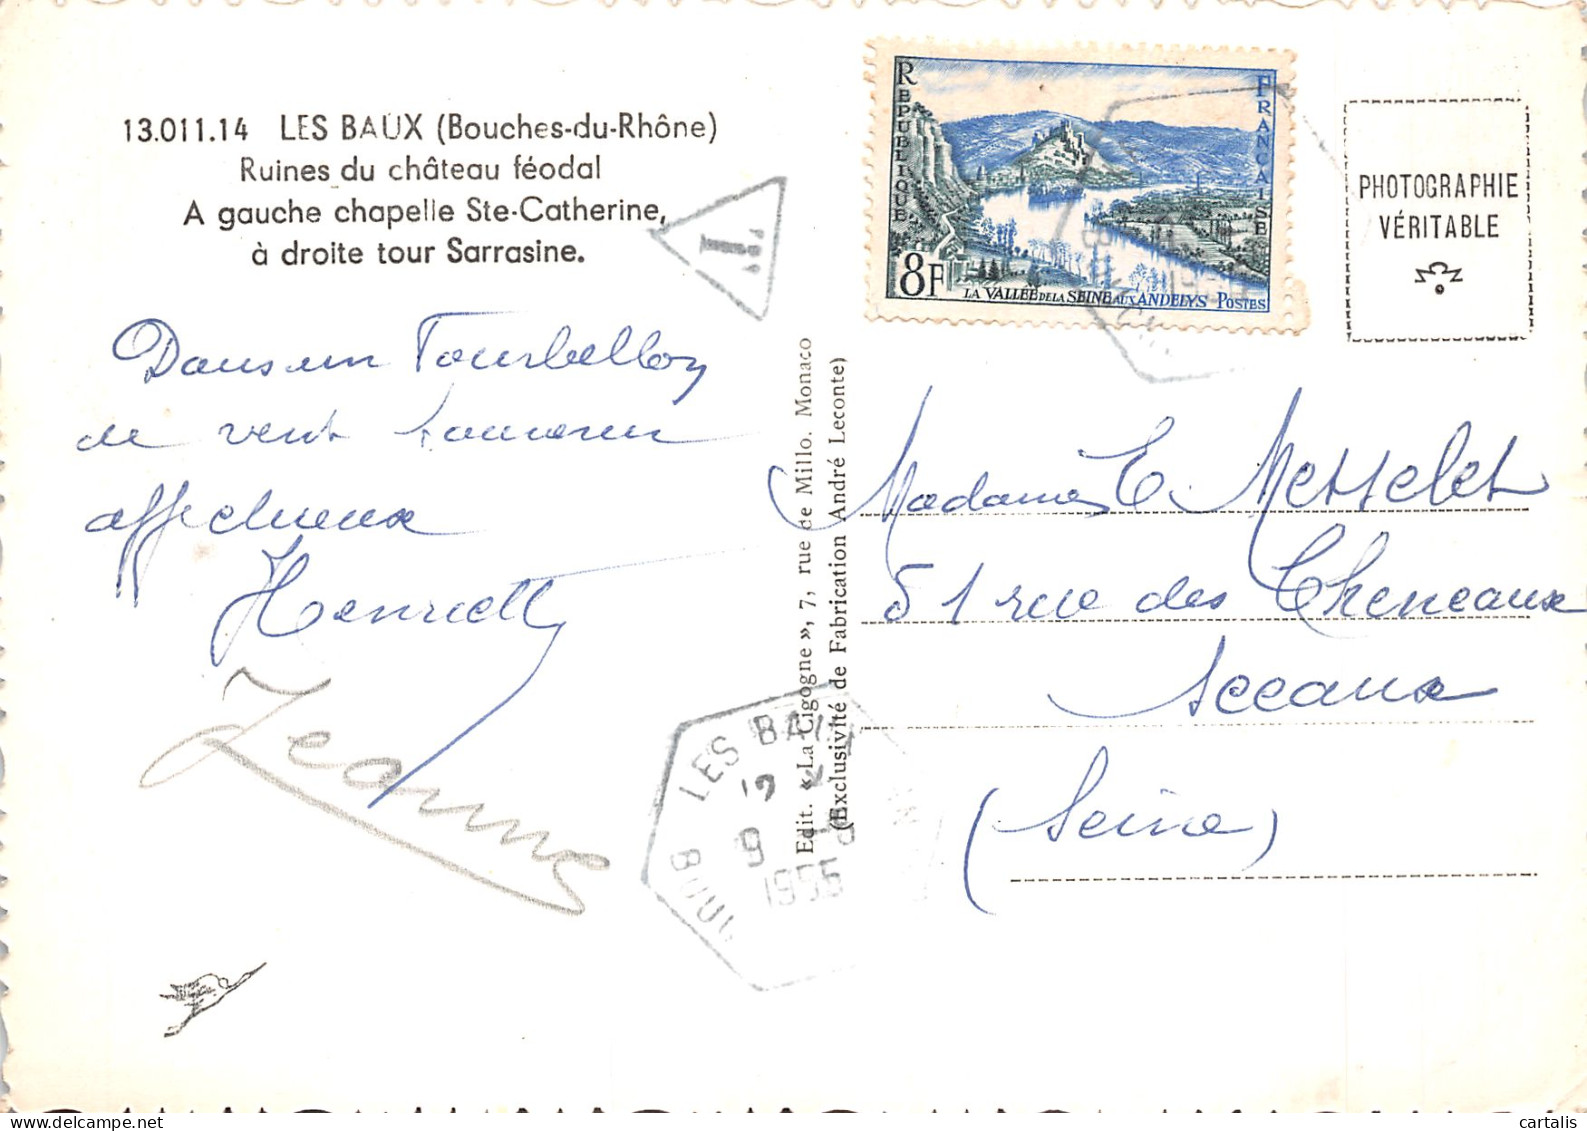 13.011.14 LES BAUX (Bouches-du-Rhône)
Ruines du château féodal
A gauche chapelle Ste-Catherine,
à droite tour Sarrasine.
T
Dans un Tourbillon
de vent souvenir
affectueux
Henriette
Jeanne
Edit. « La Cigogne », 7, rue de Millo. Monaco
(Exclusivité de Fabrication André Leconte)
LES BAUX
9
1955
REPUBLIQUE
FRANCAISE
8F
LA VALLÉE DE LA SEINE AUX ANDELYS POSTES
PHOTOGRAPHIE
VÉRITABLE
Madame E. Messelet
51 rue des Cheneaux
Sceaux
(Seine)
cartalis